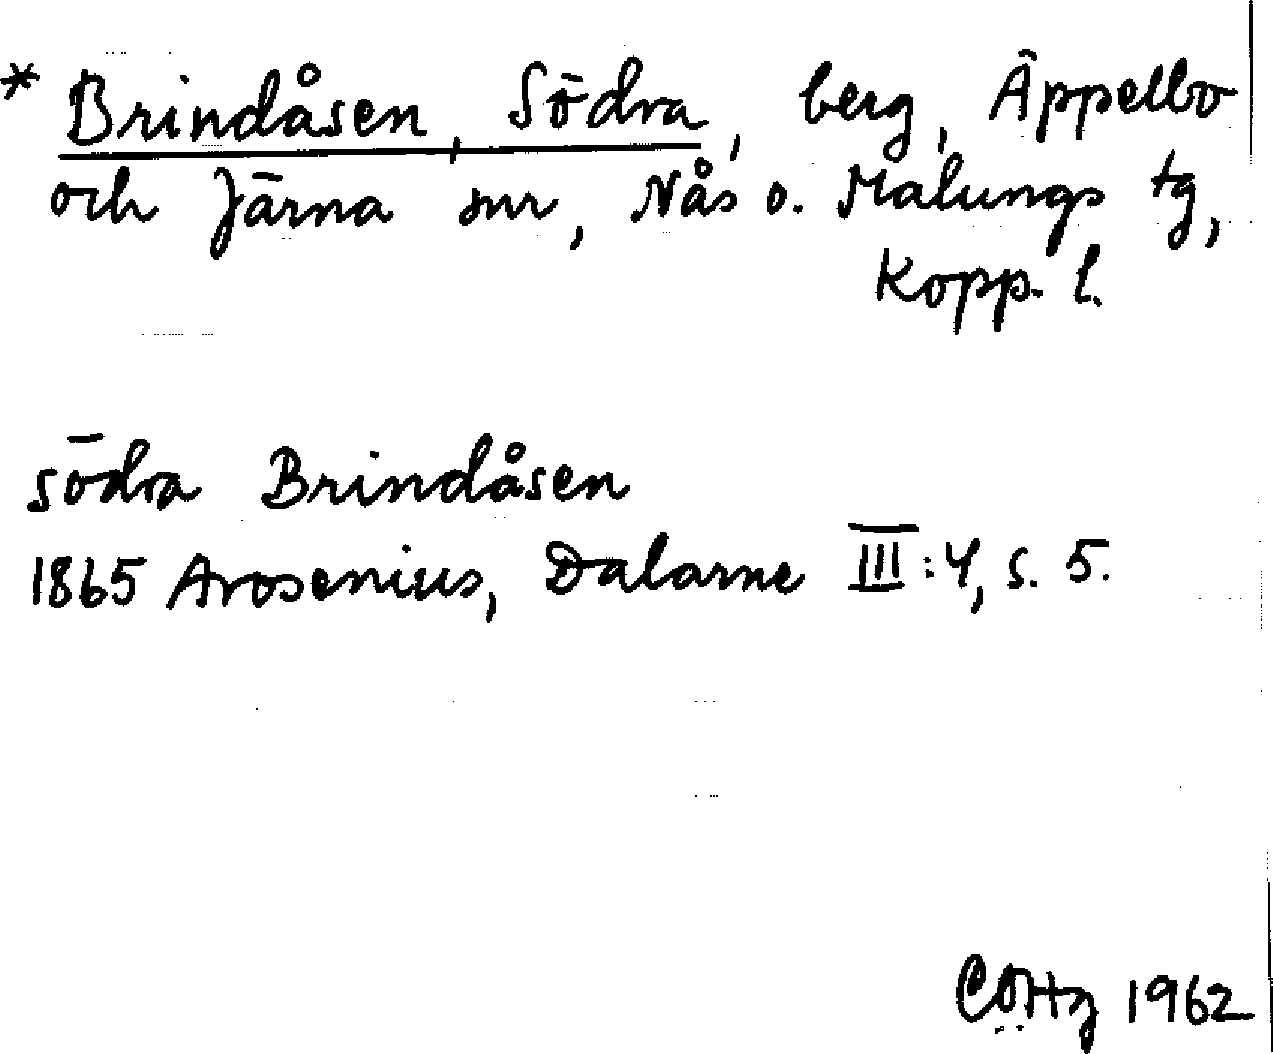 * Brindåsen, Södra, berg, Äppelbo
och Järna snr, Nås o. Malungs tg,
Kopp. l.
södra Brindåsen
1865 Arosenius, Dalarne III:4, s. 5.
1962